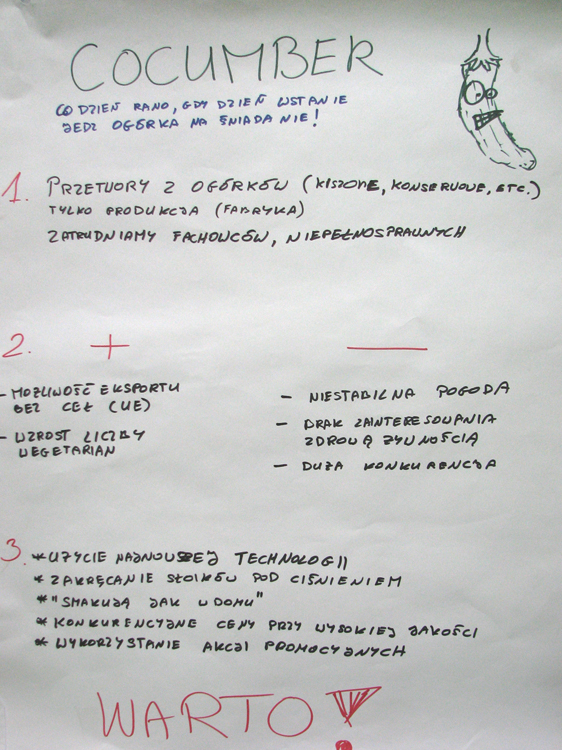 COCUMBER
CO DZIEŃ RANO, GDY DZIEŃ WSTANIE
JEDZ OGÓRKA NA ŚNIADANIE!
1. PRZETWORY Z OGÓRKÓW (KISZONE, KONSERWOWE, ETC.)
TYLKO PRODUKCJA (FABRYKA)
ZATRUDNIAMY FACHOWCÓW, NIEPEŁNOSPRAWNYCH
2. + —
- MOŻLIWOŚĆ EKSPORTU
BEZ CEŁ (UE)
- WZROST LICZBY
WEGETARIAN
- NIESTABILNA POGODA
- BRAK ZAINTERESOWANIA
ZDROWĄ ŻYWNOŚCIĄ
- DUŻA KONKURENCJA
3. * UŻYCIE NAJNOWSZEJ TECHNOLOGII
* ZAKRĘCANIE SŁOIKÓW POD CIŚNIENIEM
* "SMAKUJĄ JAK W DOMU"
* KONKURENCYJNE CENY PRZY WYSOKIEJ JAKOŚCI
* WYKORZYSTANIE AKCJI PROMOCYJNYCH
WARTO!